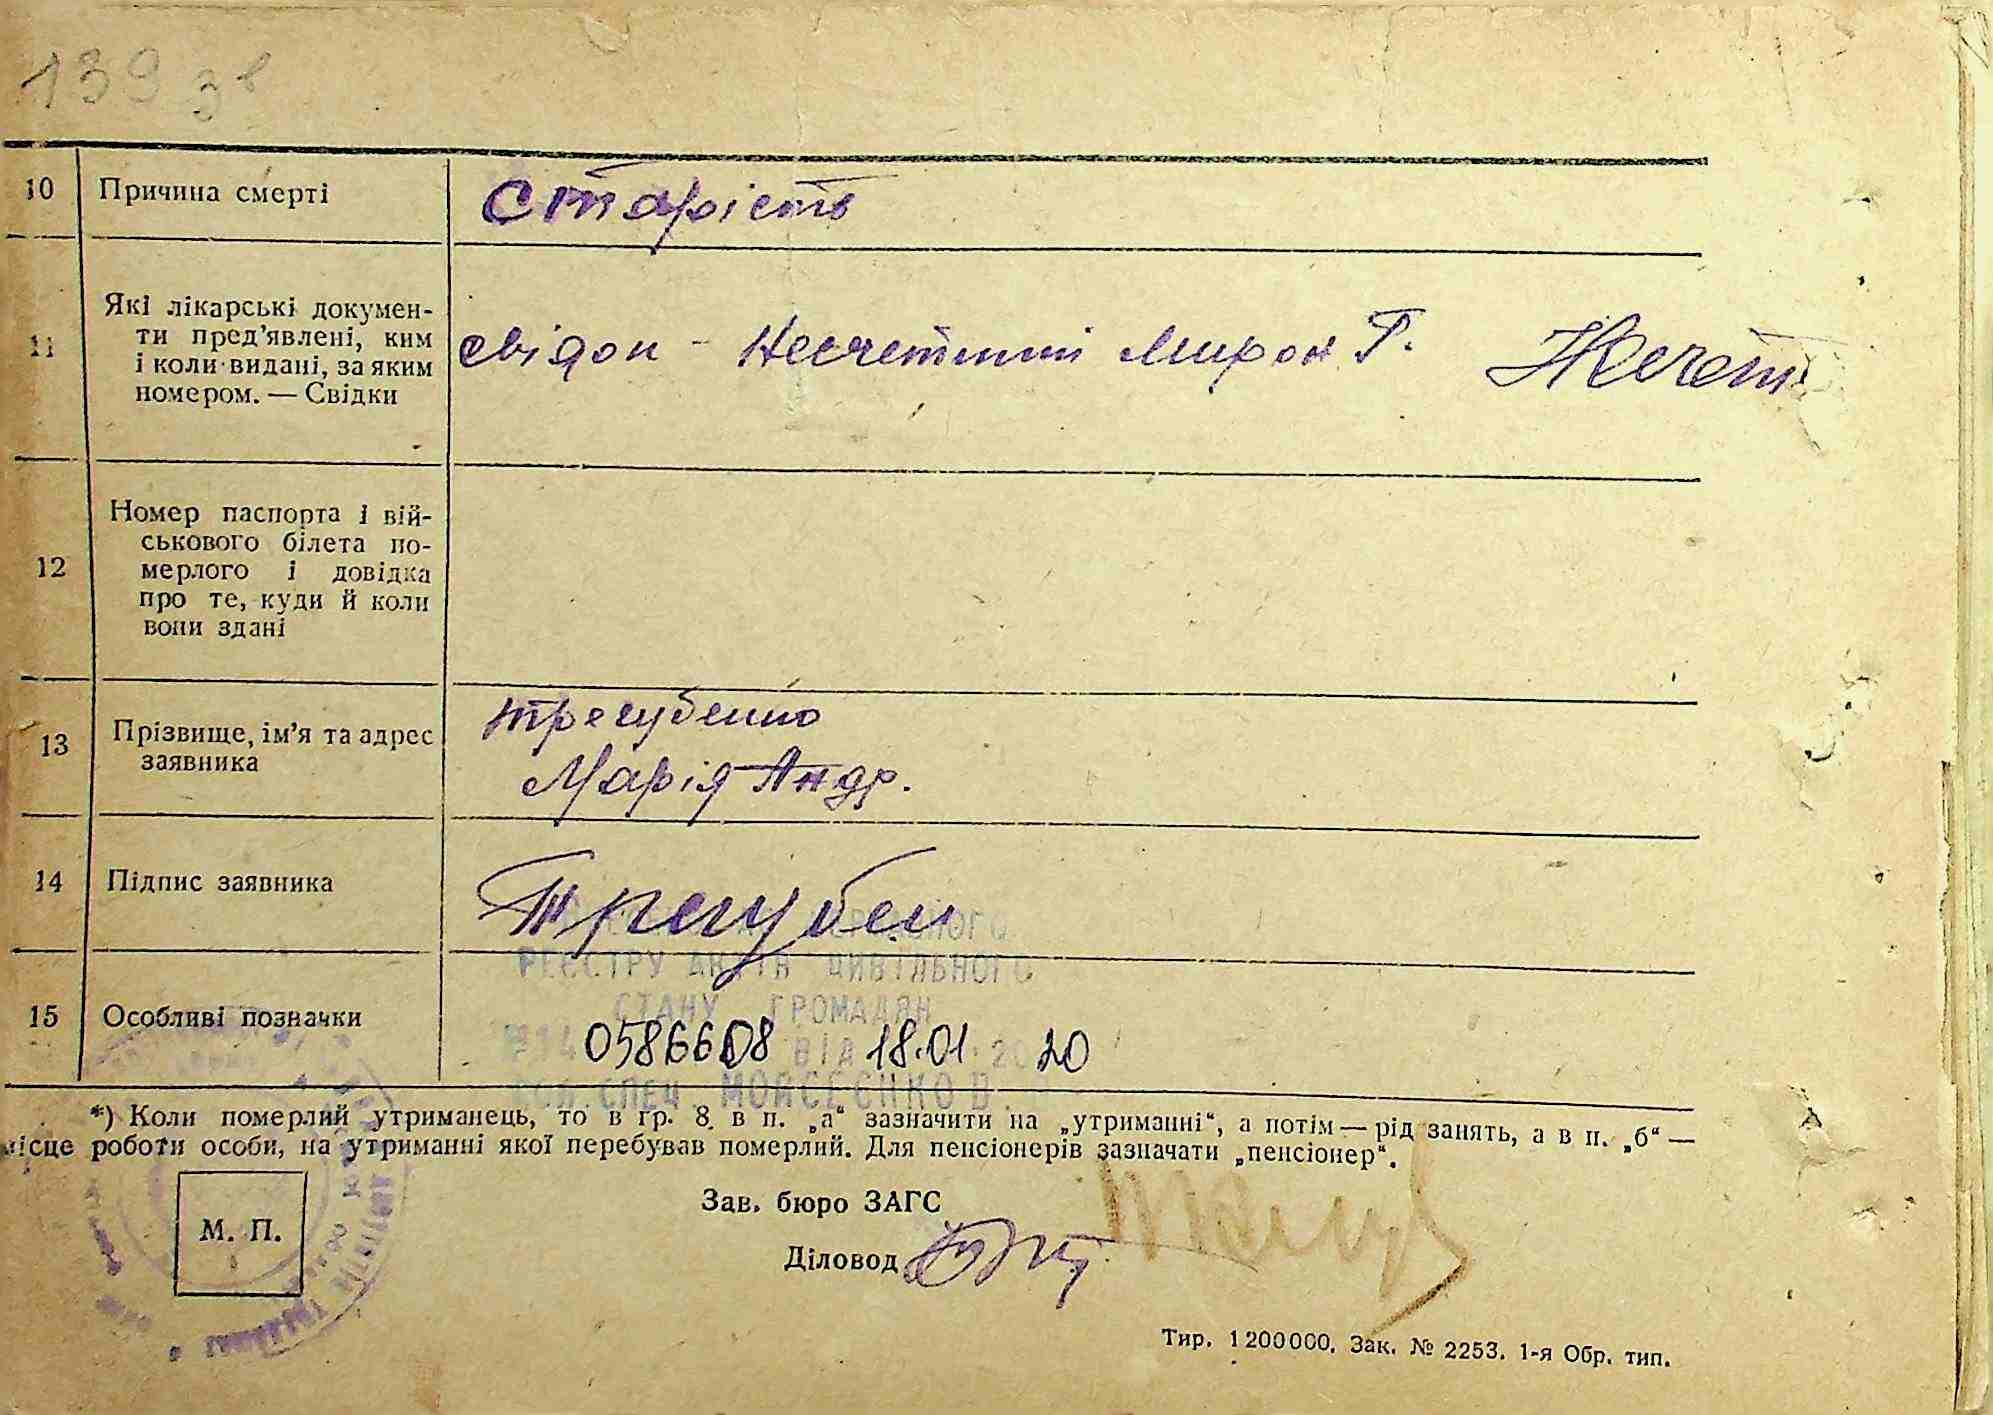 139 зв
10 Причина смерті старість
11 Які лікарські докумен-
ти пред'явлені, ким
і коли видані, за яким
номером. — Свідки
свідок - Несчетний Мирон Г. Нечет
12 Номер паспорта і вій-
ськового білета по-
мерлого і довідка
про те, куди й коли
вони здані
13 Прізвище, ім'я та адрес
заявника
Трегубенко
Марія Андр.
14 Підпис заявника Трегубен
РЕЄСТРУ АКТІВ ЦИВІЛЬНОГО
СТАНУ ГРОМАДЯН
15 Особливі позначки
0586608 ВІД 18.01 2020
СПЕЦ. МОЙСЕЄНКО В
*) Коли померлий утриманець, то в гр. 8 в п. „а“ зазначити на „утриманні“, а потім — рід занять, а в п. „б“ —
місце роботи особи, на утриманні якої перебував померлий. Для пенсіонерів зазначати „пенсіонер“.
М. П.
Зав. бюро ЗАГС
Діловод
Тир. 1200000. Зак. № 2253. 1-я Обр. тип.